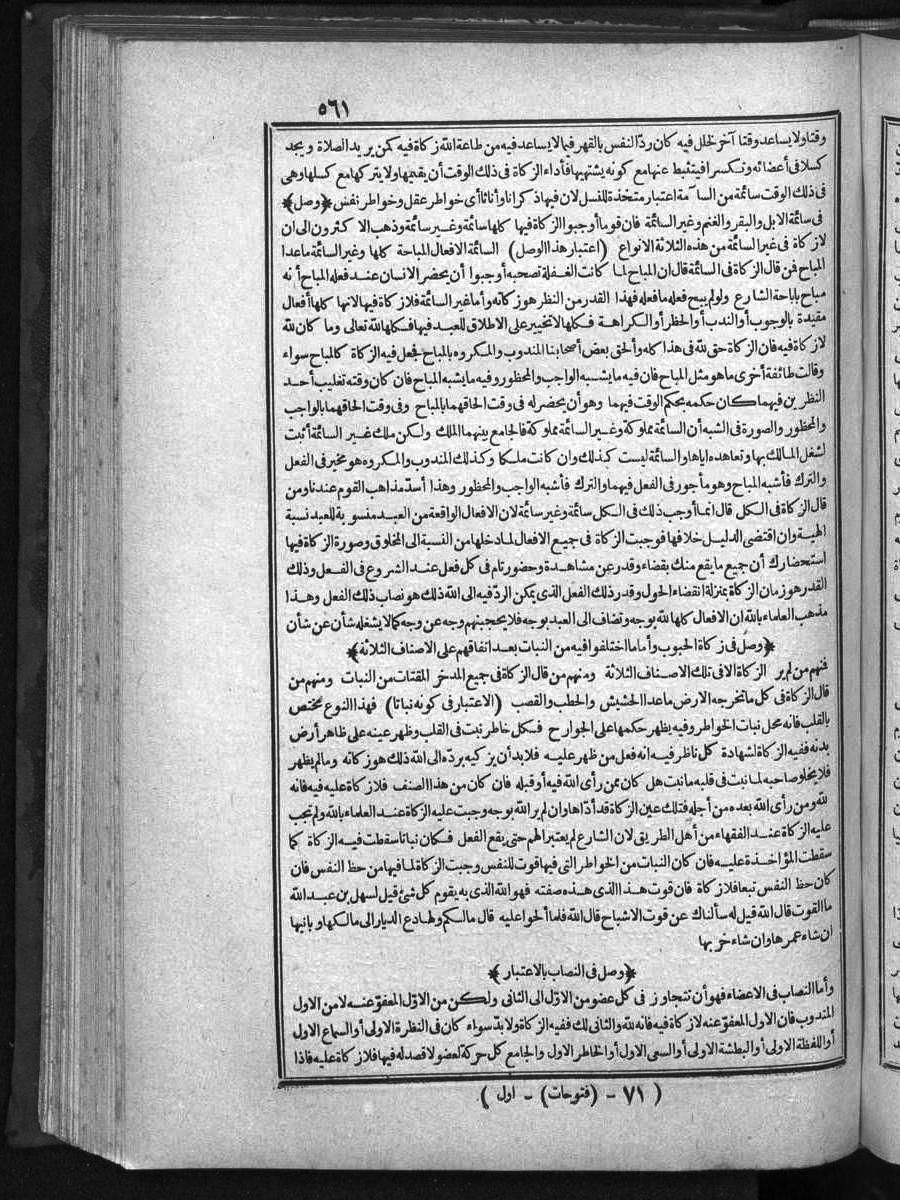 ٥٦١
وقتا ولا يساعد وقتا آخر لخلل فيه كان ردّ النفس بالقهر فيما لا يساعد فيه من طاعة الله زكاة فيه كمن يريد الصلاة ويجد
كسلا فى أعضائه وتكسرا فيتثبط عنها مع كونه يشتهيها فأداء الزكاة فى ذلك الوقت أن يقيمها ولا يتركها مع كسلها وهى
فى ذلك الوقت سائمة من السآمة اعتبار متخذة للنسل لان فيها ذكرانا وأناثا أى خواطر عقل وخواطر نفس ﴿وصل﴾
فى سائمة الابل والبقر والغنم وغير السائمة فان قوما أوجبوا الزكاة فيها كلها سائمة وغير سائمة وذهب الاكثرون الى ان
لازكاة فى غير السائمة من هذه الثلاثة الانواع (اعتبار هذا الوصل) السائمة الافعال المباحة كلها وغير السائمة ماعدا
المباح فمن قال الزكاة فى السائمة قال ان المباح لما كانت الغفلة تصحبه أوجبوا أن يحضر الانسان عند فعله المباح أنه
مباح باباحة الشارع ولو لم يبح فعله ما فعله فهذا القدر من النظر هو زكاته وأما غير السائمة فلازكاة فيها لانها كلها أفعال
مقيدة بالوجوب أو الندب أو الحظر أو الكراهة فكلها لا تخيير على الاطلاق للعبد فيها فكلها لله تعالى وما كان لله
لازكاة فيه فان الزكاة حق لله فى هذا كله وألحق بعض أصحابنا المندوب والمكروه بالمباح فجعل فيه الزكاة كالمباح سواء
وقالت طائفة أخرى ما هو مثل المباح فان فيه ما يشبه الواجب والمحظور وفيه ما يشبه المباح فان كان وقته تغليب أحد
النظرين فيهما كان حكمه بحكم الوقت فيهما وهو أن يحضر له فى وقت الحاقهما بالمباح وفى وقت الحاقهما بالواجب
والمحظور والصورة فى الشبه أن السائمة مملوكة وغير السائمة مملوكة فالجامع بينهما الملك ولكن ملك غير السائمة أثبت
لشغل المالك بها وتعاهده اياها والسائمة ليست كذلك وان كانت ملكا وكذلك المندوب والمكروه هو مخير فى الفعل
والترك فأشبه المباح وهو مأجور فى الفعل فيهما والترك فأشبه الواجب والمحظور وهذا أسدّ مذاهب القوم عندنا ومن
قال الزكاة فى الكل قال انما أوجب ذلك فى الكل سائمة وغير سائمة لان الافعال الواقعة من العبد منسوبة للعبد نسبة
الهية وان اقتضى الدليل خلافها فوجبت الزكاة فى جميع الافعال لما دخلها من النسبة الى المخلوق وصورة الزكاة فيها
استحضارك أن جميع ما يقع منك بقضاء وقدر عن مشاهدة وحضور تام فى كل فعل عند الشروع فى الفعل وذلك
القدر هو زمان الزكاة بمنزلة انقضاء الحول وقدر ذلك الفعل الذى يمكن الردّ فيه الى الله ذلك هو نصاب ذلك الفعل وهذا
مذهب العلماء بالله ان الافعال كلها لله بوجه وتضاف الى العبد بوجه فلا يحجبنهم وجه عن وجه كما لا يشغله شأن عن شأن
﴿وصل فى زكاة الحبوب وأما ما اختلفوا فيه من النبات بعد اتفاقهم على الاصناف الثلاثة﴾
فمنهم من لم ير الزكاة الا فى تلك الاصناف الثلاثة ومنهم من قال الزكاة فى جميع المدخر المقتات من النبات ومنهم من
قال الزكاة فى كل ما تخرجه الارض ماعدا الحشيش والحطب والقصب (الاعتبار فى كونه نباتا) فهذا النوع مختص
بالقلب فانه محل نبات الخواطر وفيه يظهر حكمها على الجوارح فكل خاطر نبت فى القلب وظهر عينه على ظاهر أرض
بدنه ففيه الزكاة لشهادة كل ناظر فيه انه فعل من ظهر عليه فلابد أن يزكيه بردّه الى الله ذلك هو زكاته وما لم يظهر
فلا يخلو صاحبه لما نبت فى قلبه ما نبت هل كان ممن رأى الله فيه أو قبله فان كان من هذا الصنف فلازكاة عليه فيه فانه
لله ومن رأى الله بعده من أجله فتلك عين الزكاة قد أدّاها وان لم ير الله بوجه وجبت عليه الزكاة عند العلماء بالله ولم تجب
عليه الزكاة عند الفقهاء من أهل الطريق لان الشارع لم يعتبر الهم حتى يقع الفعل فكان نباتا سقطت فيه الزكاة كما
سقطت المؤاخذة عليه فان كان النبات من الخواطر التى فيها قوت للنفس وجبت الزكاة لما فيها من حظ النفس فان
كان حظ النفس تبعا فلازكاة فان قوت هذا الذى هذه صفته فهو الله الذى به يقوم كل شئ قيل لسهل بن عبد الله
ما القوت قال الله قيل له سألناك عن قوت الاشباح قال الله فلما ألحوا عليه قال مالكم ولها دع الديار الى مالكها وبانيها
ان شاء عمرها وان شاء خربها
﴿وصل فى النصاب بالاعتبار﴾
وأما النصاب فى الاعضاء فهو أن تتجاوز فى كل عضو من الاوّل الى الثانى ولكن من الاوّل المعفوّ عنه لا من الاول
المندوب فان الاول المعفوّ عنه لازكاة فيه فانه لله والثانى لك ففيه الزكاة ولابدّ سواء كان فى النظرة الاولى أو السماع الاول
أو اللفظة الاولى أو البطشة الاولى أو السعى الاول أو الخاطر الاول والجامع كل حركة لعضو لا قصد له فيها فلازكاة عليه فاذا
(٧١ - (فتوحات) - اول)